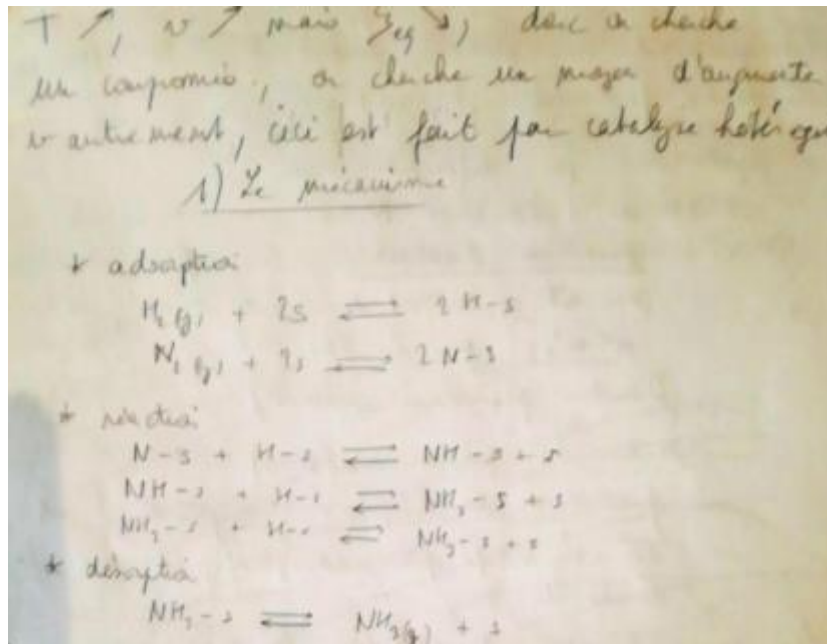 T ↗, v ↗ mais ξeq ↘, donc on cherche
un compromis, on cherche un moyen d'augmente
v autrement, ceci est fait par catalyse hétérogè
1) Le mécanisme
* adsorption
H₂(g) + 2s ⇌ 2 H-s
N₂(g) + 2s ⇌ 2 N-s
* réaction
N-s + H-s ⇌ NH-s + s
NH-s + H-s ⇌ NH₂-s + s
NH₂-s + H-s ⇌ NH₃-s + s
* désorption
NH₃-s ⇌ NH₃(g) + s